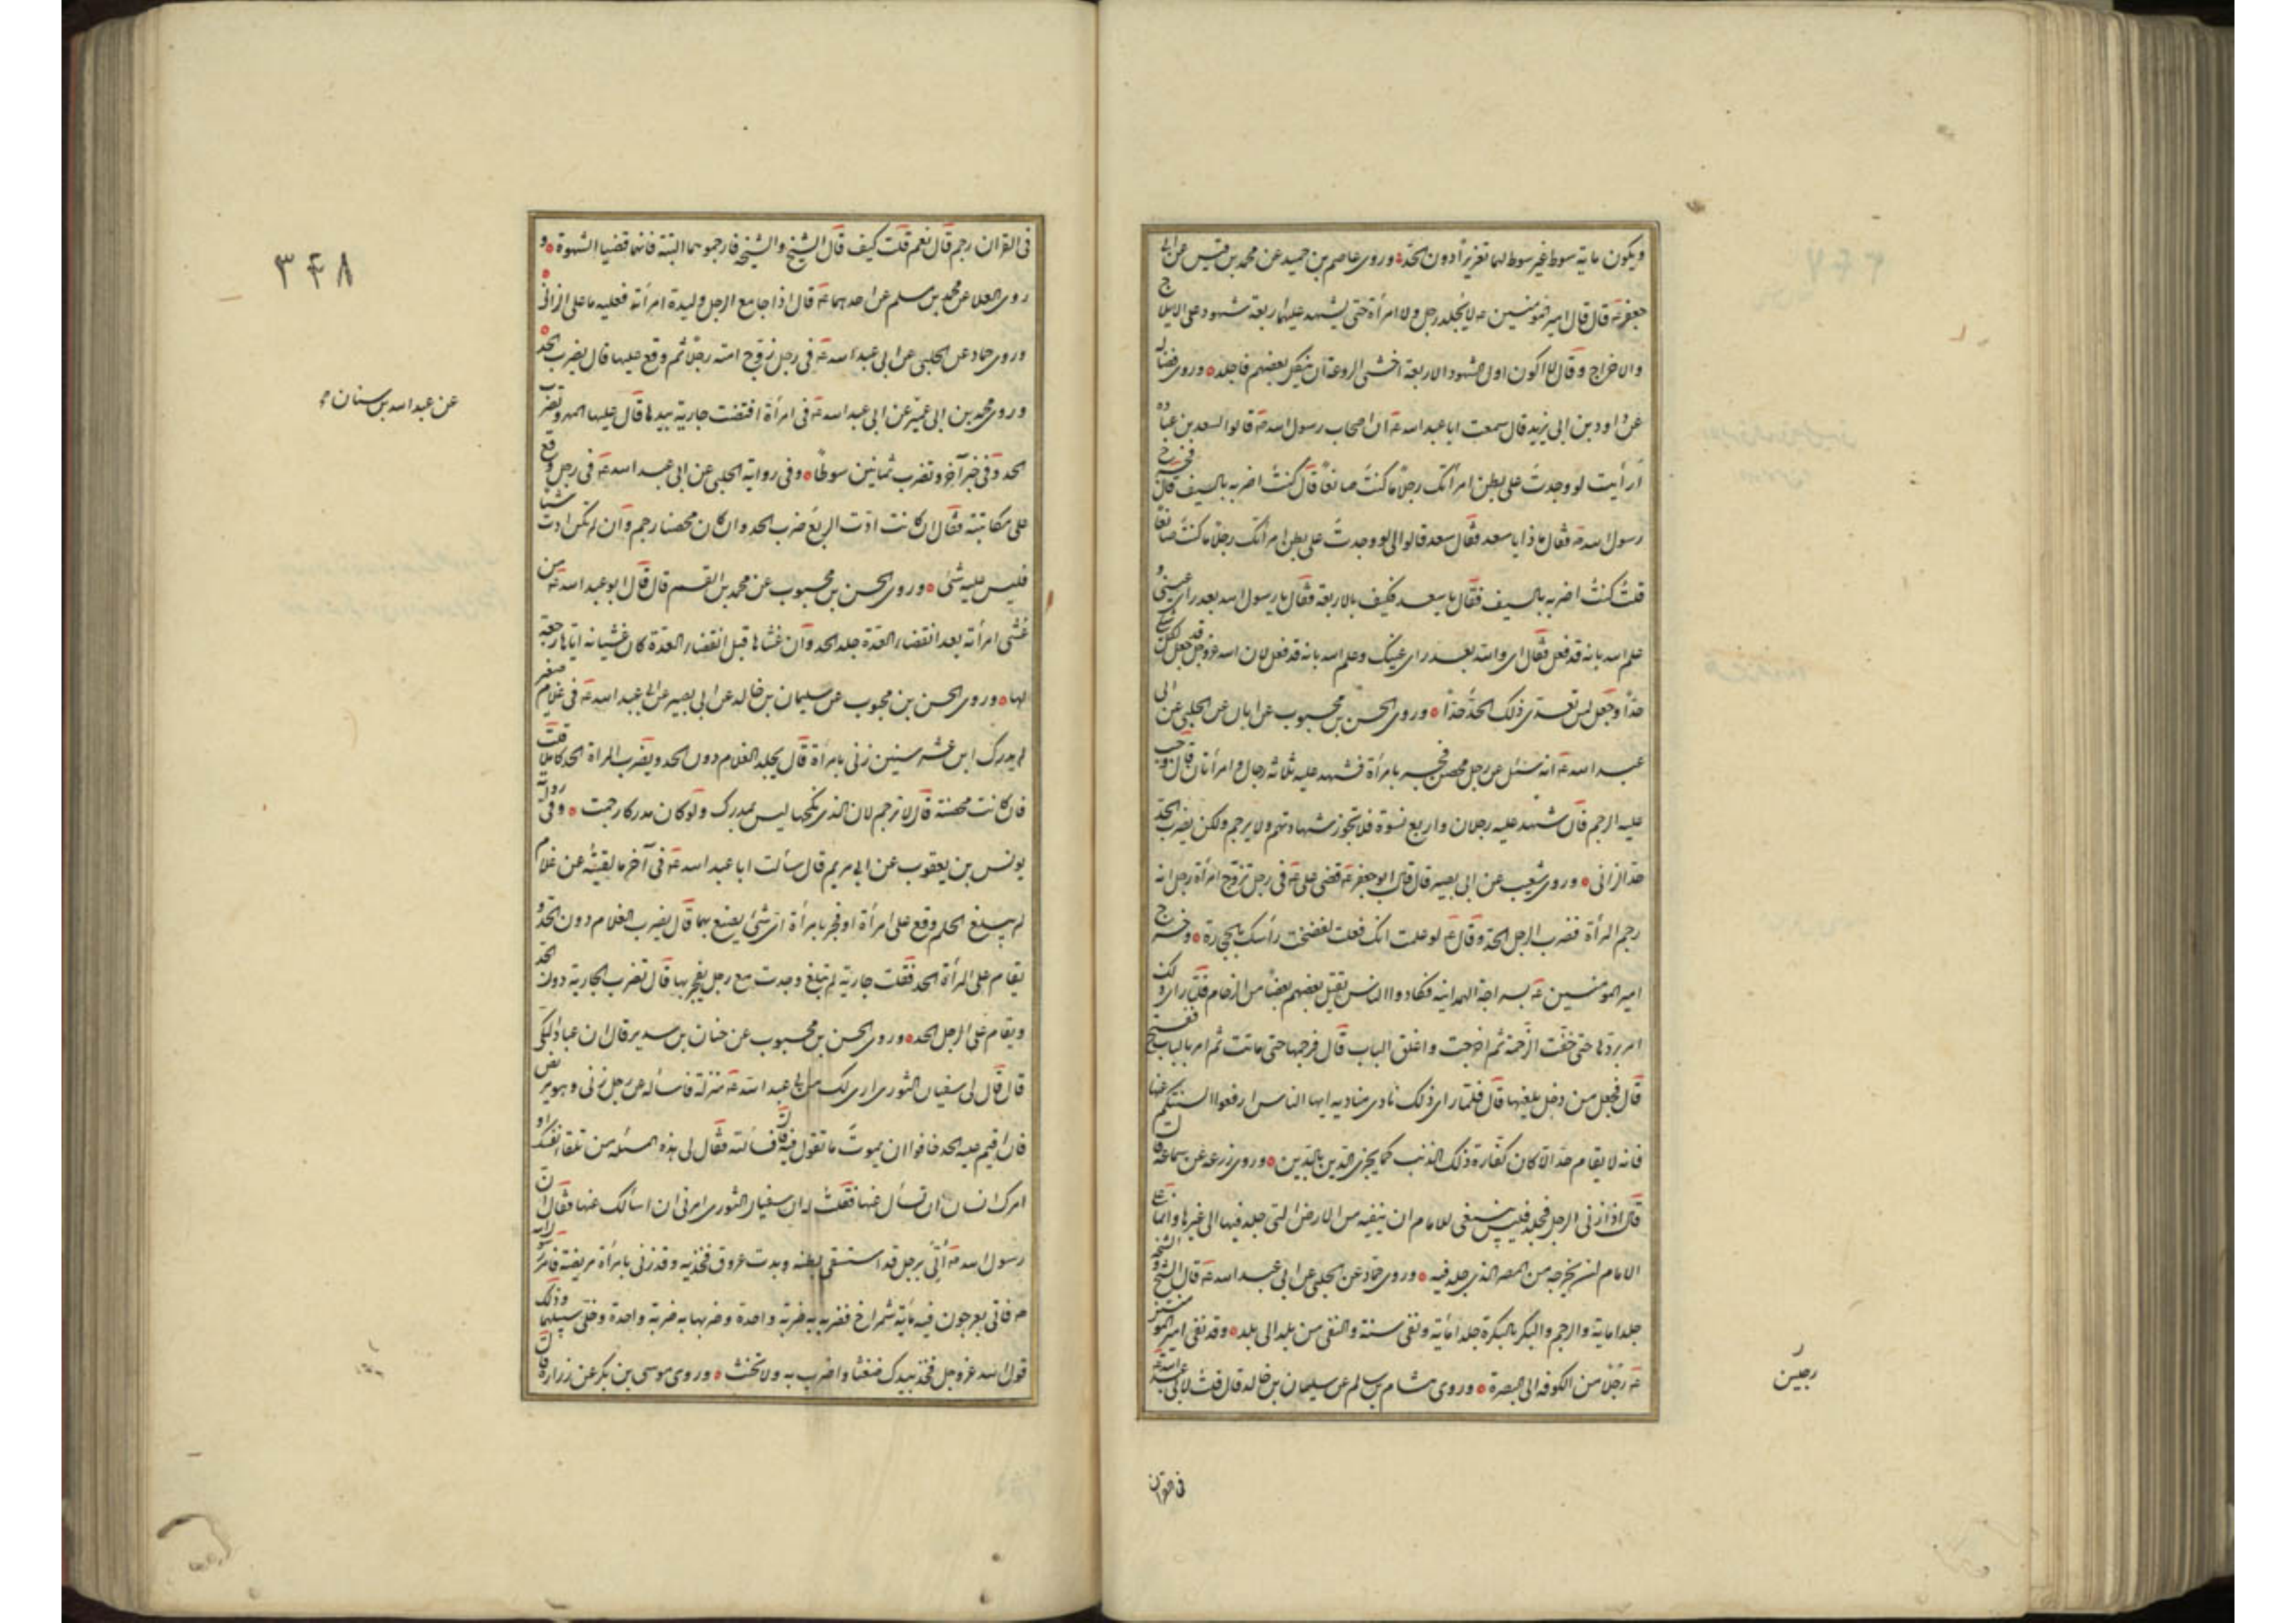 ويكون ماية سوط غير سوط لهما تعزيرا دون الحد وروى عاصم بن حميد عن محمد بن قيس عن ابي
جعفر ع قال قال امير المؤمنين ع لا يجلد رجل ولا امرأة حتى يشهد عليهما اربعة شهود على الايلاج
والاخراج وقال لا اكون اول الشهود الاربعة اخشى الروعة ان ينكل بعضهم فاجلد وروى فضاله
عن داود بن ابى يزيد قال سمعت ابا عبد الله ع ان اصحاب رسول الله ص قالوا لسعد بن عباده
أرأيت لو وجدت على بطن امرأتك رجلا ما كنت صانعا قال كنت اضربه بالسيف قال فخرج
رسول الله ص فقال ما ذا يا سعد فقال سعد قالوا لى لو وجدت على بطن امرأتك رجلا ما كنت صانعا
قلت كنت اضربه بالسيف فقال يا سعد فكيف بالاربعة فقال يا رسول الله بعد راى عينى و
علم الله بانه قد فعل فقال اى والله بعد راى عينك وعلم الله بانه قد فعل لان الله عز وجل قد جعل لكل شئ
حدا وجعل لمن تعدى ذلك الحد حدا وروى الحسن بن محبوب عن ابان عن الحلبى عن ابى
عبد الله ع انه سئل عن رجل محصن فجر بامرأة فشهد عليه ثلاثة رجال وامرأتان قال وجب
عليه الرجم فان شهد عليه رجلان واربع نسوة فلا تجوز شهادتهم ولا يرجم ولكن يضرب الحد
حد الزانى وروى شعيب عن ابى بصير قال قال ابو جعفر ع قضى على ع فى رجل تزوج امرأة رجل انه
رجم المرأة فضرب الرجل الحد وقال ع لو علمت انك فعلت لفضخت رأسك بالحجارة وخرج
امير المومنين ع بسراجة الهمدانيه فكاد والناس يقتل بعضهم بعضا من الزحام فلما راى ذلك
امر بردها حتى خفت الزحمة ثم اخرجت واغلق الباب قال فرجمها حتى ماتت ثم امر بالباب ففتح
قال فجعل من دخل يلعنها قال فلما راى ذلك نادى مناديه ايها الناس ارفعوا السنتكم عنها
فانه لا يقام حد الا كان كفارة ذلك الذنب كما يجزى الدين بالدين وروى زرعه عن سماعه قال
قال اذا زنى الرجل فجلد فليس ينبغى للامام ان ينفيه من الارض التى جلد فيها الى غيرها وانما على
الامام ان يخرجه من المصر الذى جلد فيه وروى حماد عن الحلبى عن ابى عبد الله ع قال الشيخ والشيخة
جلدا ماية والرجم والبكر بالبكرة جلد ماية ونفى سنة والنفى من بلد الى بلد وقد نفى امير المومنين
ع رجلا من الكوفه الى البصرة وروى هشام بن سالم عن سليمان بن خالد قال قلت لابى عبد الله ع
رجلين
فى القران
٣۴٨
فى القران رجم قال نعم قلت كيف قال الشيخ والشيخة فارجموهما البتة فانهما قضيا الشهوة و
روى العلا عن محمد بن مسلم عن احدهما ع قال اذا جامع الرجل وليدة امرأته فعليه ما على الزانى
وروى حماد عن الحلبى عن ابى عبد الله ع فى رجل زوج امته رجلا ثم وقع عليها قال يضرب الحد
عن عبد الله بن سنان
وروى محمد بن ابى عمير عن ابى عبد الله ع فى امرأة افتضت جارية بيدها قال عليها المهر وتضرب
الحد وفى خبر آخر وتضرب ثمانين سوطا وفى رواية الحلبى عن ابى عبد الله ع فى رجل وقع
على مكاتبته فقال ان كانت ادت الربع ضرب الحد وان كان محصنا رجم وان لم تكن ادت شيئا
فليس عليه شئ وروى الحسن بن محبوب عن محمد بن القسم قال قال ابو عبد الله ع من
غشى امرأته بعد انقضاء العدة جلد الحد وان غشاها قبل انقضاء العدة كان غشيانه اياها رجعة
لها وروى الحسن بن محبوب عن سليمان بن خالد عن ابى بصير عن ابى عبد الله ع فى غلام صغير
لم يدرك ابن عشر سنين زنى بامرأة قال يجلد الغلام دون الحد ويضرب المراة الحد كاملا قلت
فان كانت محصنة قال لا ترجم لان الذى نكحها ليس بمدرك ولو كان مدركا رجمت وفى رواية
يونس بن يعقوب عن ابى مريم قال سألت ابا عبد الله ع فى آخر ما لقيته عن غلام
لم يبلغ الحلم وقع على امرأة او فجر بامرأة اى شئ يصنع بهما قال يضرب الغلام دون الحد و
يقام على المرأة الحد فقلت جارية لم تبلغ وجدت مع رجل يفجر بها قال تضرب الجارية دون الحد
ويقام على الرجل الحد وروى الحسن بن محبوب عن حنان بن سدير قال ان عباد المكى
قال قال لى سفيان الثورى ارى لك من ابى عبد الله ع منزلة فاسأله عن رجل زنى وهو مريض
فان اقيم عليه الحد خافوا ان يموت ما تقول فيه قال فسألته فقال لى هذه المسئله من تلقاء نفسك او
امرك انسان ان تسأل عنها فقلت له ان سفيان الثورى امرنى ان اسألك عنها فقال ان
رسول الله ص أتى برجل قد استسقى بطنه وبدت عروق فخذيه وقد زنى بامرأة مريضة فامر رسول الله
ص فاتى بعرجون فيه ماية شمراخ فضربه به ضربة واحدة وضربها به ضربة واحدة وخلى سبيلهما وذلك
قول الله عز وجل فخذ بيدك ضغثا واضرب به ولا تحنث وروى موسى بن بكر عن زرارة قال